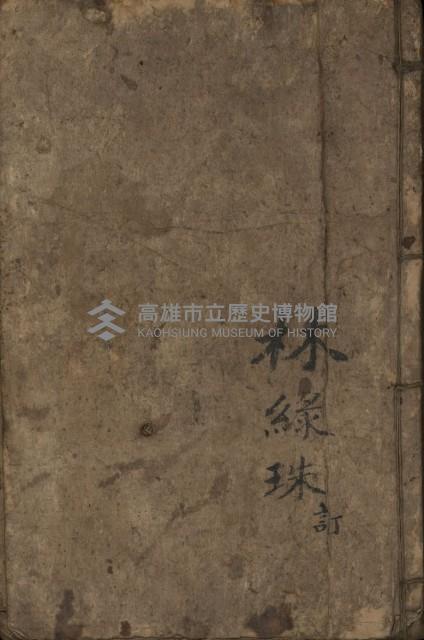 高雄市立歷史博物館
KAOHSIUNG MUSEUM OF HISTORY
林
綠
珠
訂